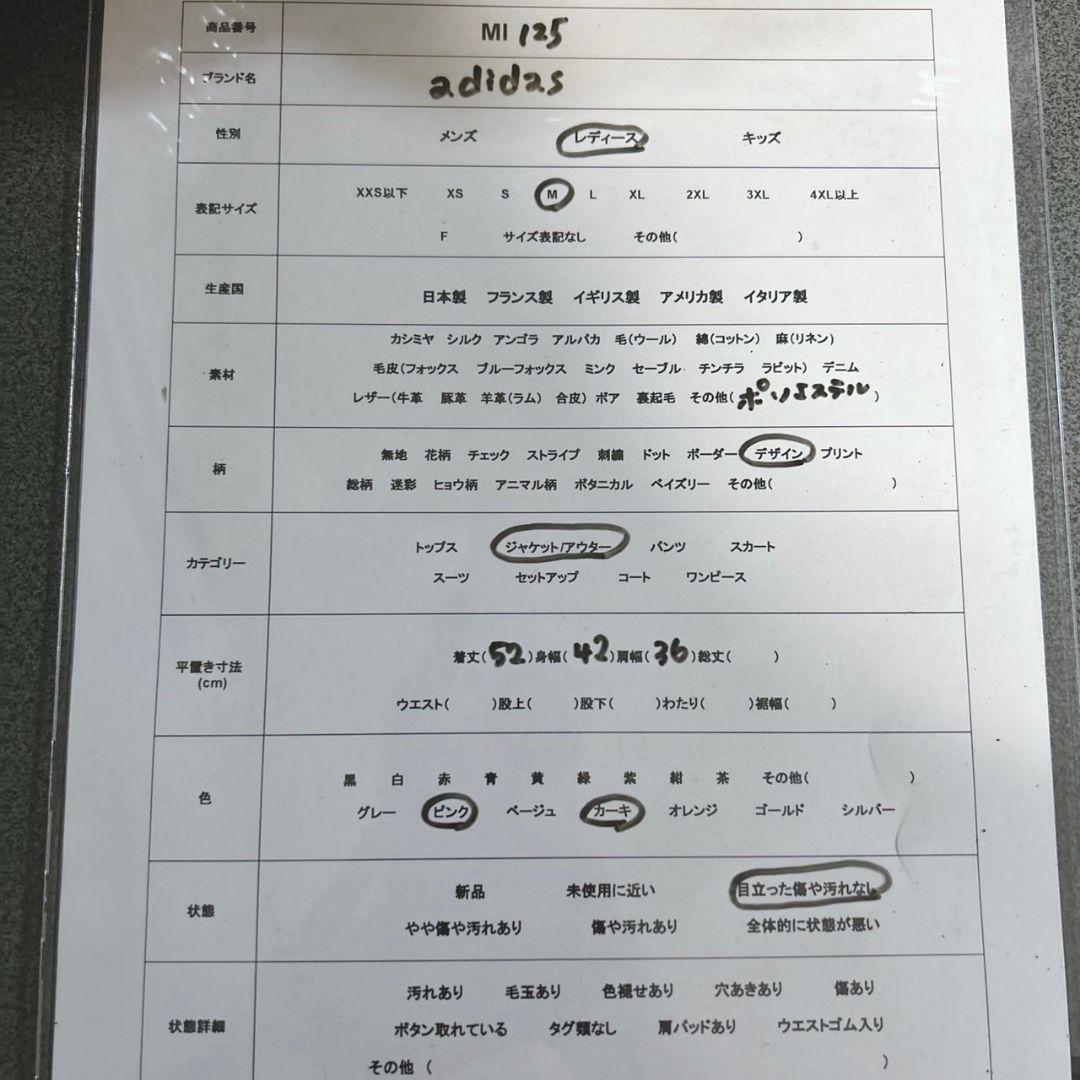 商品番号 MI 125
ブランド名 adidas
性別 メンズ レディース キッズ
表記サイズ XXS以下 XS S M L XL 2XL 3XL 4XL以上
F サイズ表記なし その他( )
生産国 日本製 フランス製 イギリス製 アメリカ製 イタリア製
素材 カシミヤ シルク アンゴラ アルパカ 毛(ウール) 綿(コットン) 麻(リネン)
毛皮(フォックス ブルーフォックス ミンク セーブル チンチラ ラビット) デニム
レザー(牛革 豚革 羊革(ラム) 合皮) ボア 裏起毛 その他(ポリエステル)
柄 無地 花柄 チェック ストライプ 刺繍 ドット ボーダー デザイン プリント
総柄 迷彩 ヒョウ柄 アニマル柄 ボタニカル ペイズリー その他( )
カテゴリー トップス ジャケット/アウター パンツ スカート
スーツ セットアップ コート ワンピース
平置き寸法 (cm) 着丈(52)身幅(42)肩幅(36)総丈( )
ウエスト( )股上( )股下( )わたり( )裾幅( )
色 黒 白 赤 青 黄 緑 紫 紺 茶 その他( )
グレー ピンク ベージュ カーキ オレンジ ゴールド シルバー
状態 新品 未使用に近い 目立った傷や汚れなし
やや傷や汚れあり 傷や汚れあり 全体的に状態が悪い
状態詳細 汚れあり 毛玉あり 色褪せあり 穴あきあり 傷あり
ボタン取れている タグ類なし 肩パッドあり ウエストゴム入り
その他 ( )